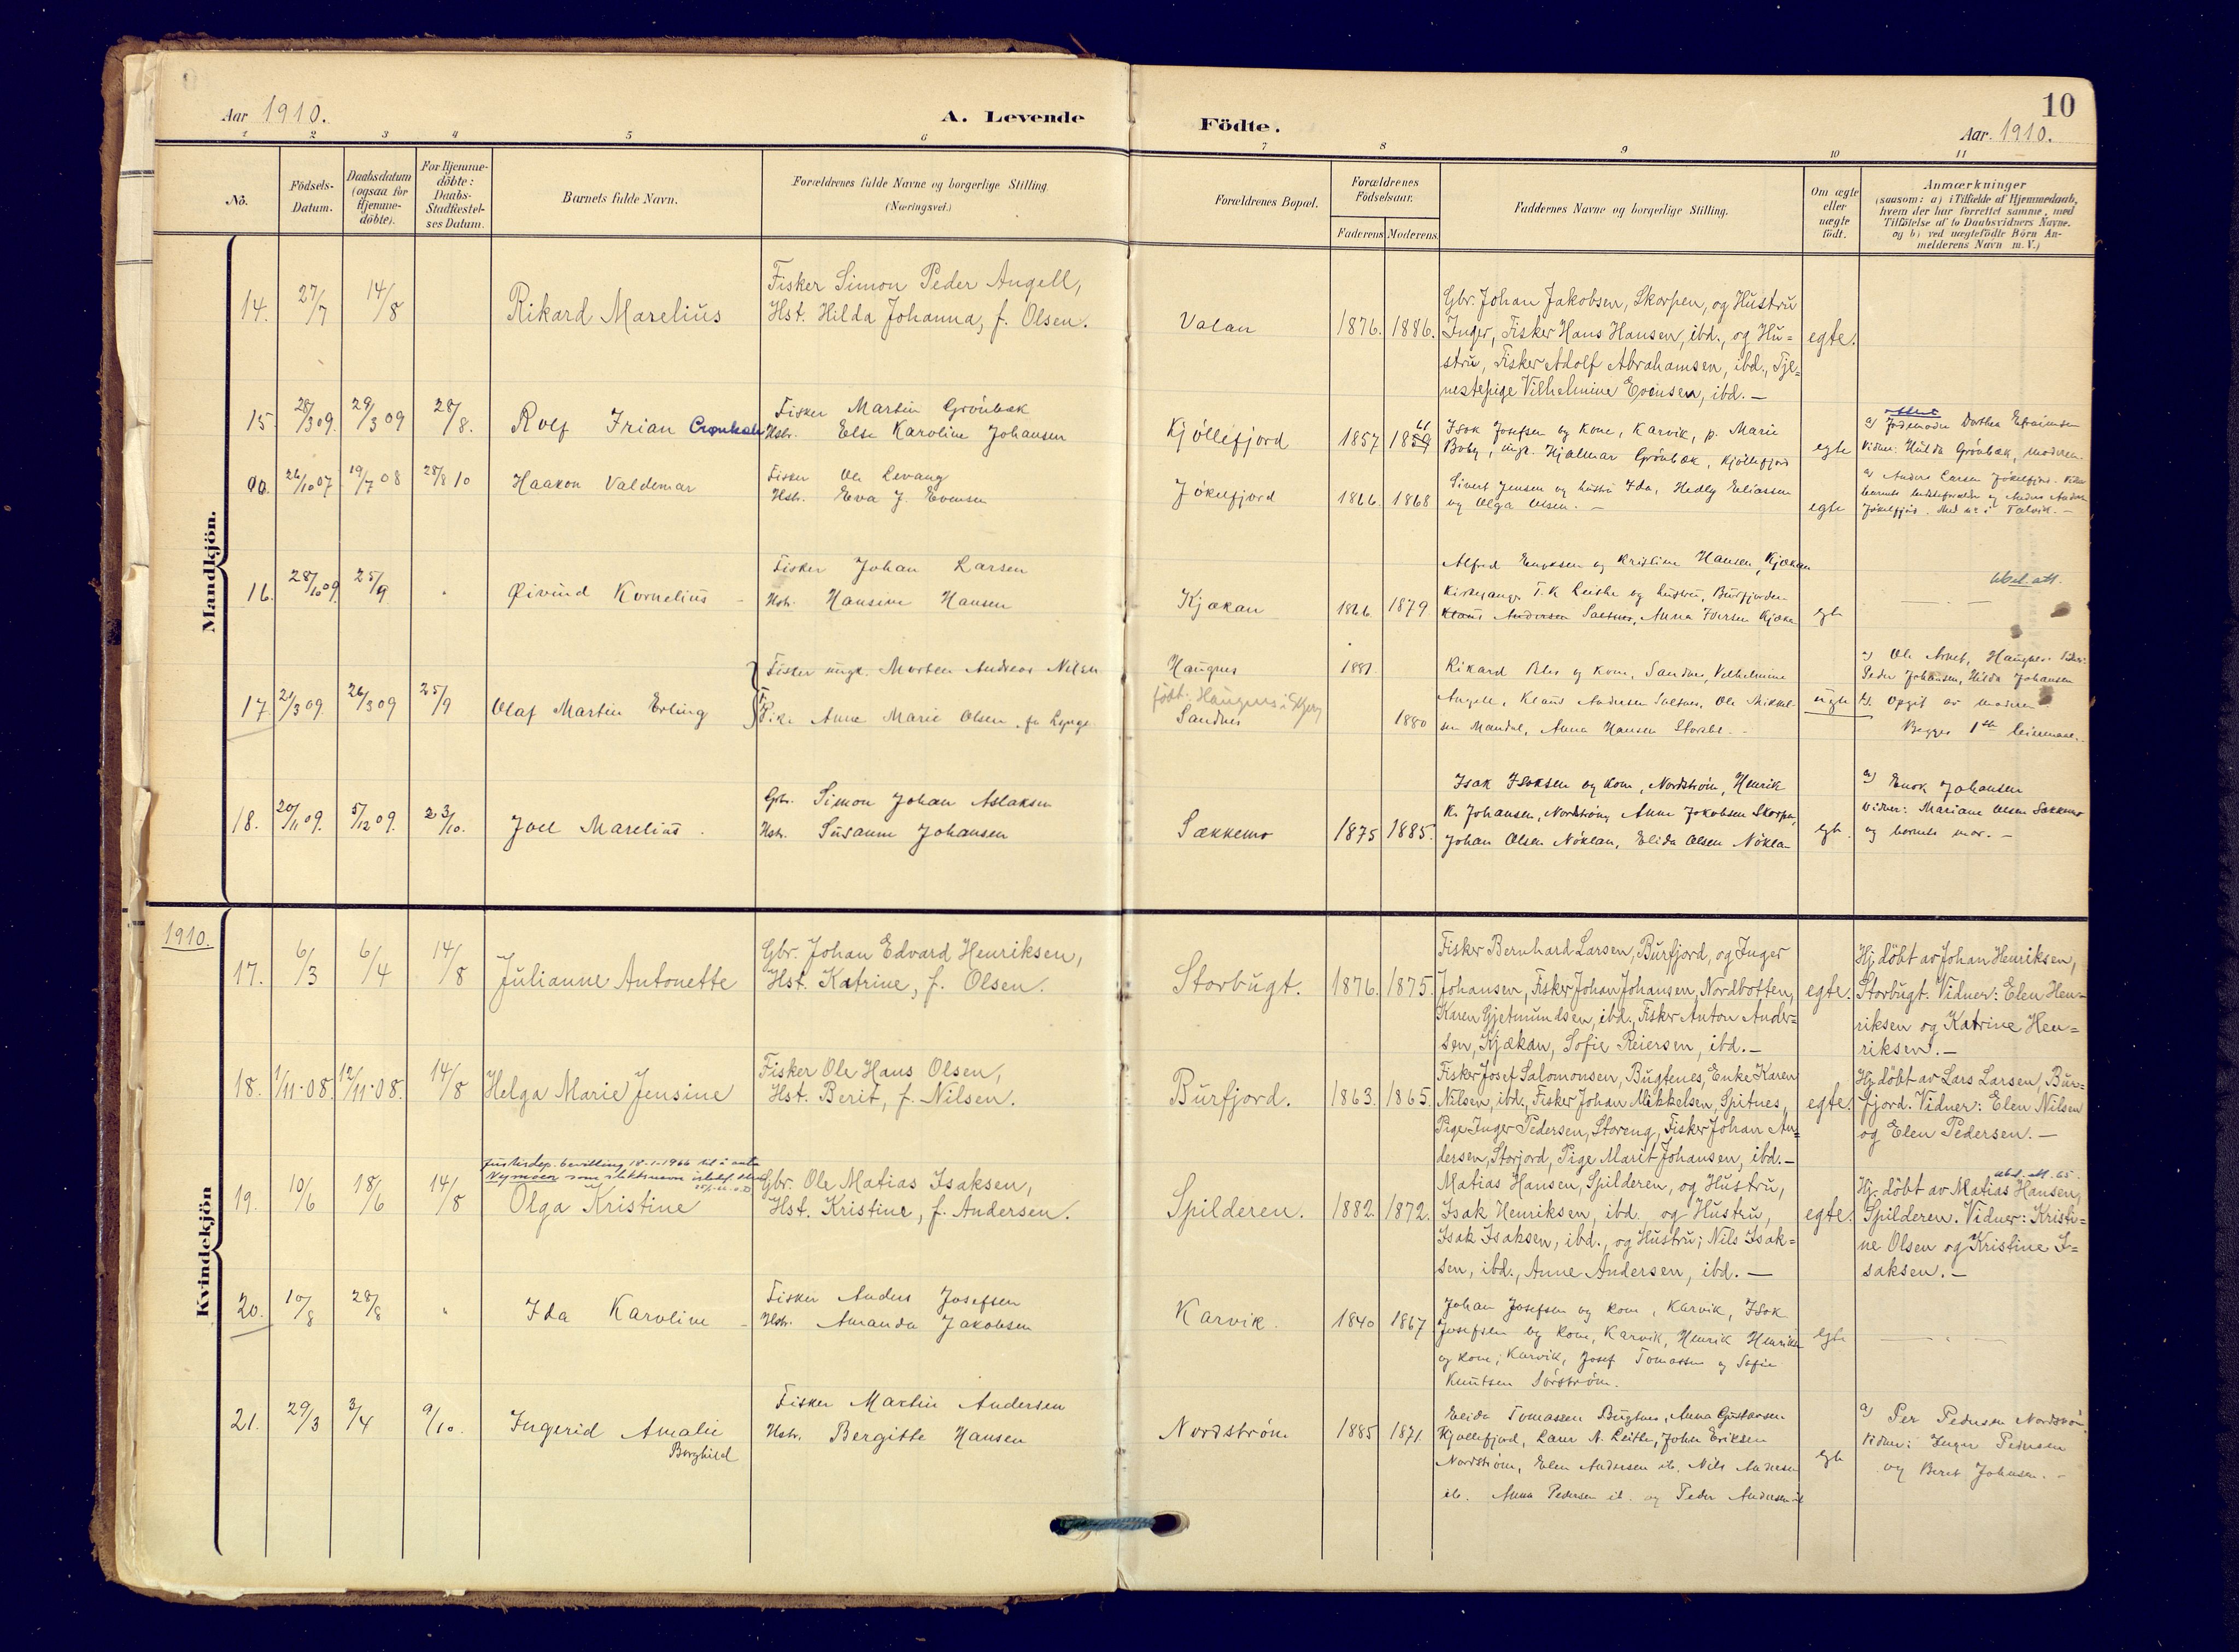 Aar 1910.
A. Levende
Födte.
10
Aar 1910.
1 2 3 4 5 6 7 8 9 10 11
No.
Födsels-
Datum.
Daabsdatum
(ogsaa for
Hjemme-
döbte).
For Hjemme-
döbte:
Daabs-
Stadfæstel-
ses Datum.
Barnets fulde Navn.
Forældrenes fulde Navne og borgerlige Stilling
(Næringsvei.)
Forældrenes Bopæl.
Forældrenes
Födselsaar.
Faderens Moderens
Faddernes Navne og borgerlige Stilling.
Om ægte
eller
uægte
födt.
Anmærkninger
(saasom: a) i Tilfælde af Hjemmedaab,
hvem der har forrettet samme, med
Tilföielse af to Daabsvidners Navne.
og b) ved uægtefödte Börn An-
melderens Navn m. V.)
Mandkjön.
14. 27/7 14/8
Rikard Marelius
Fisker Simon Peder Angell,
Hst. Hilda Johanna, f. Olsen.
Valan
1876. 1886.
Gbr. Johan Jakobsen, Skorpen, og Hustru
Inger, Fisker Hans Hansen, ibd., og Hu=
stru, Fisker Adolf Abrahamsen, ibd., Tje=
nestepige Vilhelmine Evensen, ibd. —
egte.
15. 28/3 09. 29/3 09 28/8.
Rolf Irian
Fisker Martin Grönbæk
Hstr. Else Karoline Johansen
Kjöllefjord
1857 1859 61
Isak Josefsen og kone, Karvik, p. Marie
Boby, ungk. Hjalmar Grönbæk, Kjöllefjord
egte
a) Jordemoder Dorthea Efraimsen
Vidner: Hilda Grönbæk, moderen.
26/10 07 19/7 08 28/8 10
Haakon Valdemar
Fisker Ole Levang
Hstr. Eva J. Evensen
Jökelfjord
1866. 1868
Sivert Jensen og hustru Ida, Hedly Eliassen
og Olga Olsen. —
egte
a) Anders Larsen Jökelfjord.
Jökelfjord. Med nr. i Talvik. —
16. 28/10 09. 25/9
Øivind Kornelius
Fisker Johan Larsen
Hstr. Hansine Hansen
Kjækan
1866. 1879.
Alfred Enoksen og Kristine Hansen, Kjækan
Kirkesang. T. K Leithe og hustru, Burfjorden
Klaus Andersen Saltnes, Anna Iversen Kjækan
egte
utsel. att.
17. 21/3 09. 26/3 09 25/9
Olaf Martin Erling
Fisker ungk. Morten Andreas Nilsen
Pike Anne Marie Olsen
Haugnes
födt. Haugnes i Skjerv
Sandnes
1881.
1880
Rikard Olsen og kone, Sandnes, Vilhelmine
Angell, Klaus Andersen Saltnes, Ole Mikkel-
sen Mandal, Anna Hansen
uegte
a) Ole Arnet, Haugnes.
Peder Johansen, Hilda Johansen
b). Opgit av moderen
Begges 1ste leiermaal.
18. 20/11 09. 5/12 09. 23/10.
Joel Marelius.
Gbr. Simon Johan Aslaksen
Hstr. Susanne Johansen
Sækkemo
1875 1885.
Isak Isaksen og kone, Nordström, Henrik
K. Johansen, Nordström, Anne Jakobsen Skorpa,
Johan Olsen Nöklan, Elida Olsen Nöklan
egte.
a) Enok Johansen
Vidner: Mariane Olsen Sækkemo
og barnets mor. —
Kvindekjön
1910.
17. 6/3 6/4 14/8
Julianne Antonette
Gbr. Johan Edvard Henriksen,
Hst. Katrine, f. Olsen.
Storbugt.
1876. 1875.
Fisker Bernhard Larsen, Burfjord, og Inger
Johansen, Fisker Johan Johansen, Nordbotten,
Karen Gjetmundsen, ibd., Fisker Anton Ander=
sen, Kjækan, Sofie Reiersen, ibd. —
egte.
Hj. döbt av Johan Henriksen,
Storbugt. Vidner: Elen Hen=
riksen og Katrine Hen=
riksen. —
18. 1/11-08. 12/11-08. 14/8
Helga Marie Jensine
Fisker Ole Hans Olsen,
Hst. Berit, f. Nilsen.
Burfjord.
1863. 1865.
Fisker Josef Salomonsen, Bugtenes, Enke Karen
Nilsen, ibd., Fisker Johan Mikkelsen, Spitnes,
Pige Inger Pedersen, Storeng, Fisker Johan An=
dersen, Storjord, Pige Marit Johansen, ibd. —
egte.
Hj. döbt av Lars Larsen, Bur=
fjord. Vidner: Elen Nilsen
og Elen Pedersen. —
Justisdep. bevilling 18-1-1966 til å anta
Nymoen som slektsnavn
19. 10/6 18/6 14/8
Olga Kristine
Gbr. Ole Matias Isaksen,
Hst. Kristine, f. Andersen.
Spilderen.
1882. 1872.
Matias Hansen, Spilderen, og Hustru,
Isak Henriksen, ibd., og Hustru,
Isak Isaksen, ibd., og Hustru; Nils Isak=
sen, ibd., Anne Andersen, ibd. —
egte.
utsel. att. 65.
Hj. döbt av Matias Hansen,
Spilderen. Vidner: Kristi=
ne Olsen og Kristine I=
saksen. —
20. 10/8 28/8
Ida Karoline
Fisker Anders Josefsen
Hstr. Amanda Jakobsen
Karvik.
1840 1867
Johan Josefsen og kone, Karvik, Isak
Josefsen og kone, Karvik, Henrik Henriksen
og kone, Karvik, Josef Tomassen og Sofie
Knutsen Sörström.
egte
21. 29/3 3/4 9/10.
Ingerid Amalie
Borghild
Fisker Martin Andersen
Hstr. Bergitte Hansen
Nordström
1885 1871.
Elida Tomassen Bugtnes, Anna Gustavsen
Kjöllefjord, Laur A. Leithe, Johan Eriksen
Nordström, Elen Andersen ib. Nils Andersen
ib. Anna Pedersen ib. og Peder Andersen ib
egte
a) Per Pedersen Nordström
Vidner: Inger Pedersen
og Beret Johnsen. —